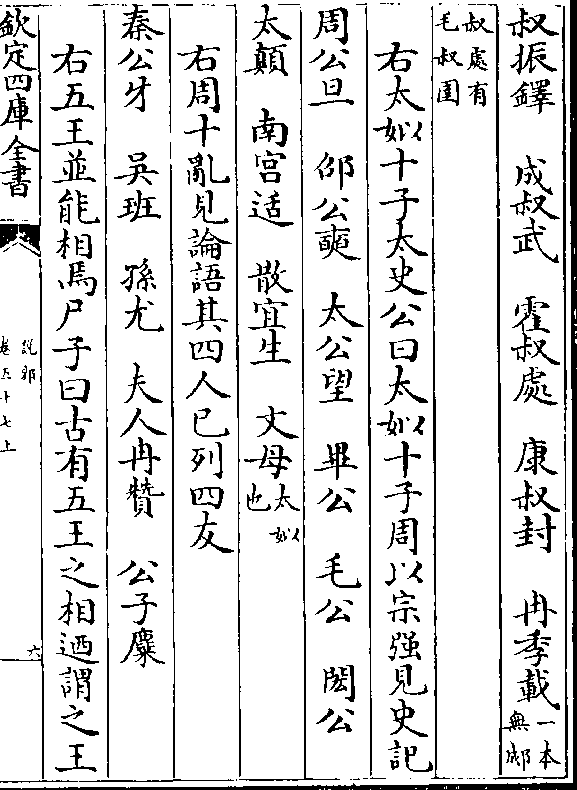 叔振鐸　成叔武　霍叔處　康叔封　冉季載一本無郕
叔處有毛叔圉
右太姒十子太史公曰太姒十子周以宗强見史記
周公旦　邵公奭　太公望　畢公　毛公　閎公
太顛　南宫适　散宜生　文母太姒也
右周十亂見論語其四人已列四友
秦公牙　吳班　孫尤　夫人冉贊　公子麋
右五王並能相焉尸子曰古有五王之相迺謂之王
欽定四庫全書
說郛
卷五十七上
六